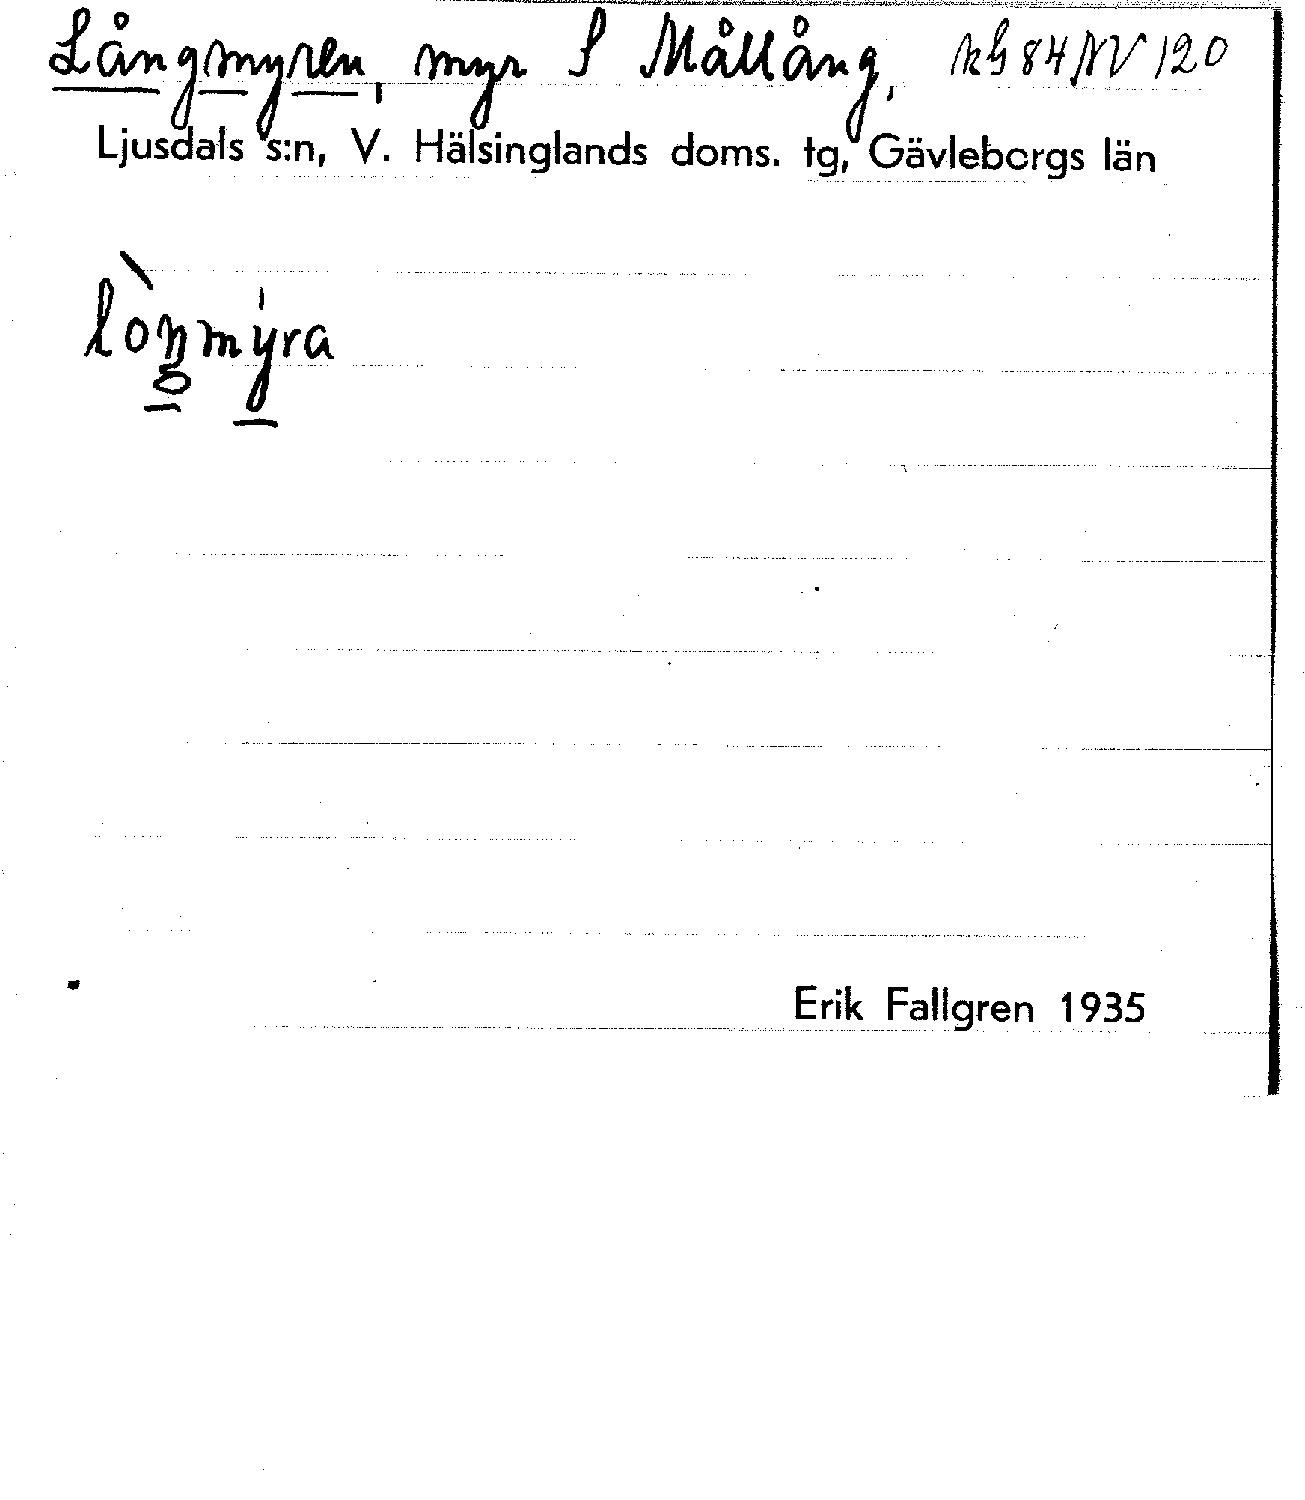 Långmyren, myr S Mållång, kG 84 NV 120
Ljusdals s:n, V. Hälsinglands doms. tg, Gävleborgs län
lo̖ŋmy̍ra
Erik Fallgren 1935